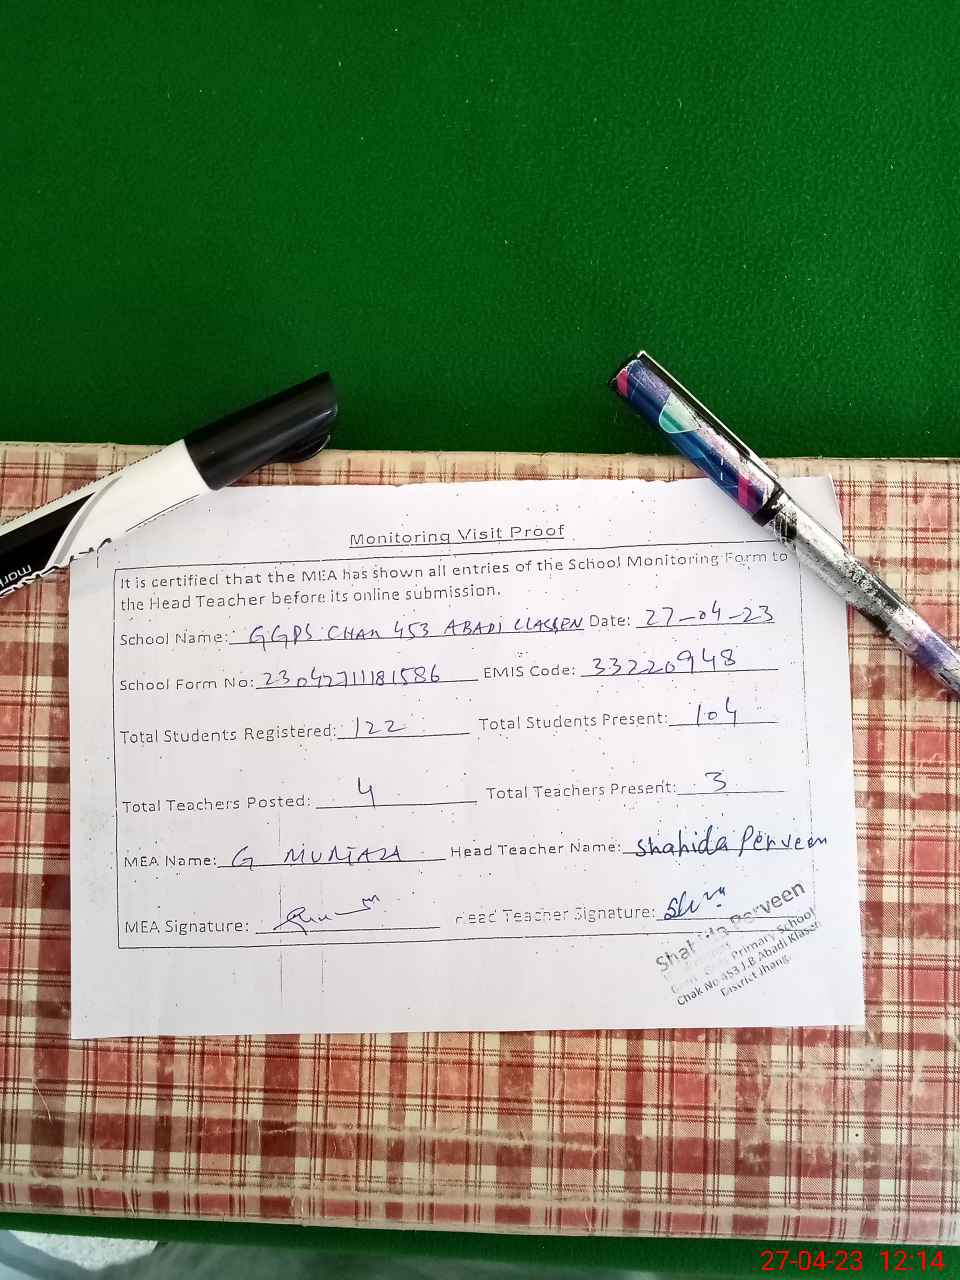 Monitoring Visit Proof
It is certified that the MEA has shown all entries of the School Monitoring Form to
the Head Teacher before its online submission.
School Name: GGPS CHAK 453 ABADI CLASSEN Date: 27-04-23
School Form No: 23042711181586 EMIS Code: 33220948
Total Students Registered: 122 Total Students Present: 104
Total Teachers Posted: 4 Total Teachers Present: 3
MEA Name: G MURTAZA Head Teacher Name: Shahida Perveen
MEA Signature: Head Teacher Signature:
Shahida Perveen
Primary School
Chak No 453 J.B Abadi Klasen
District Jhang.
27-04-23 12:14